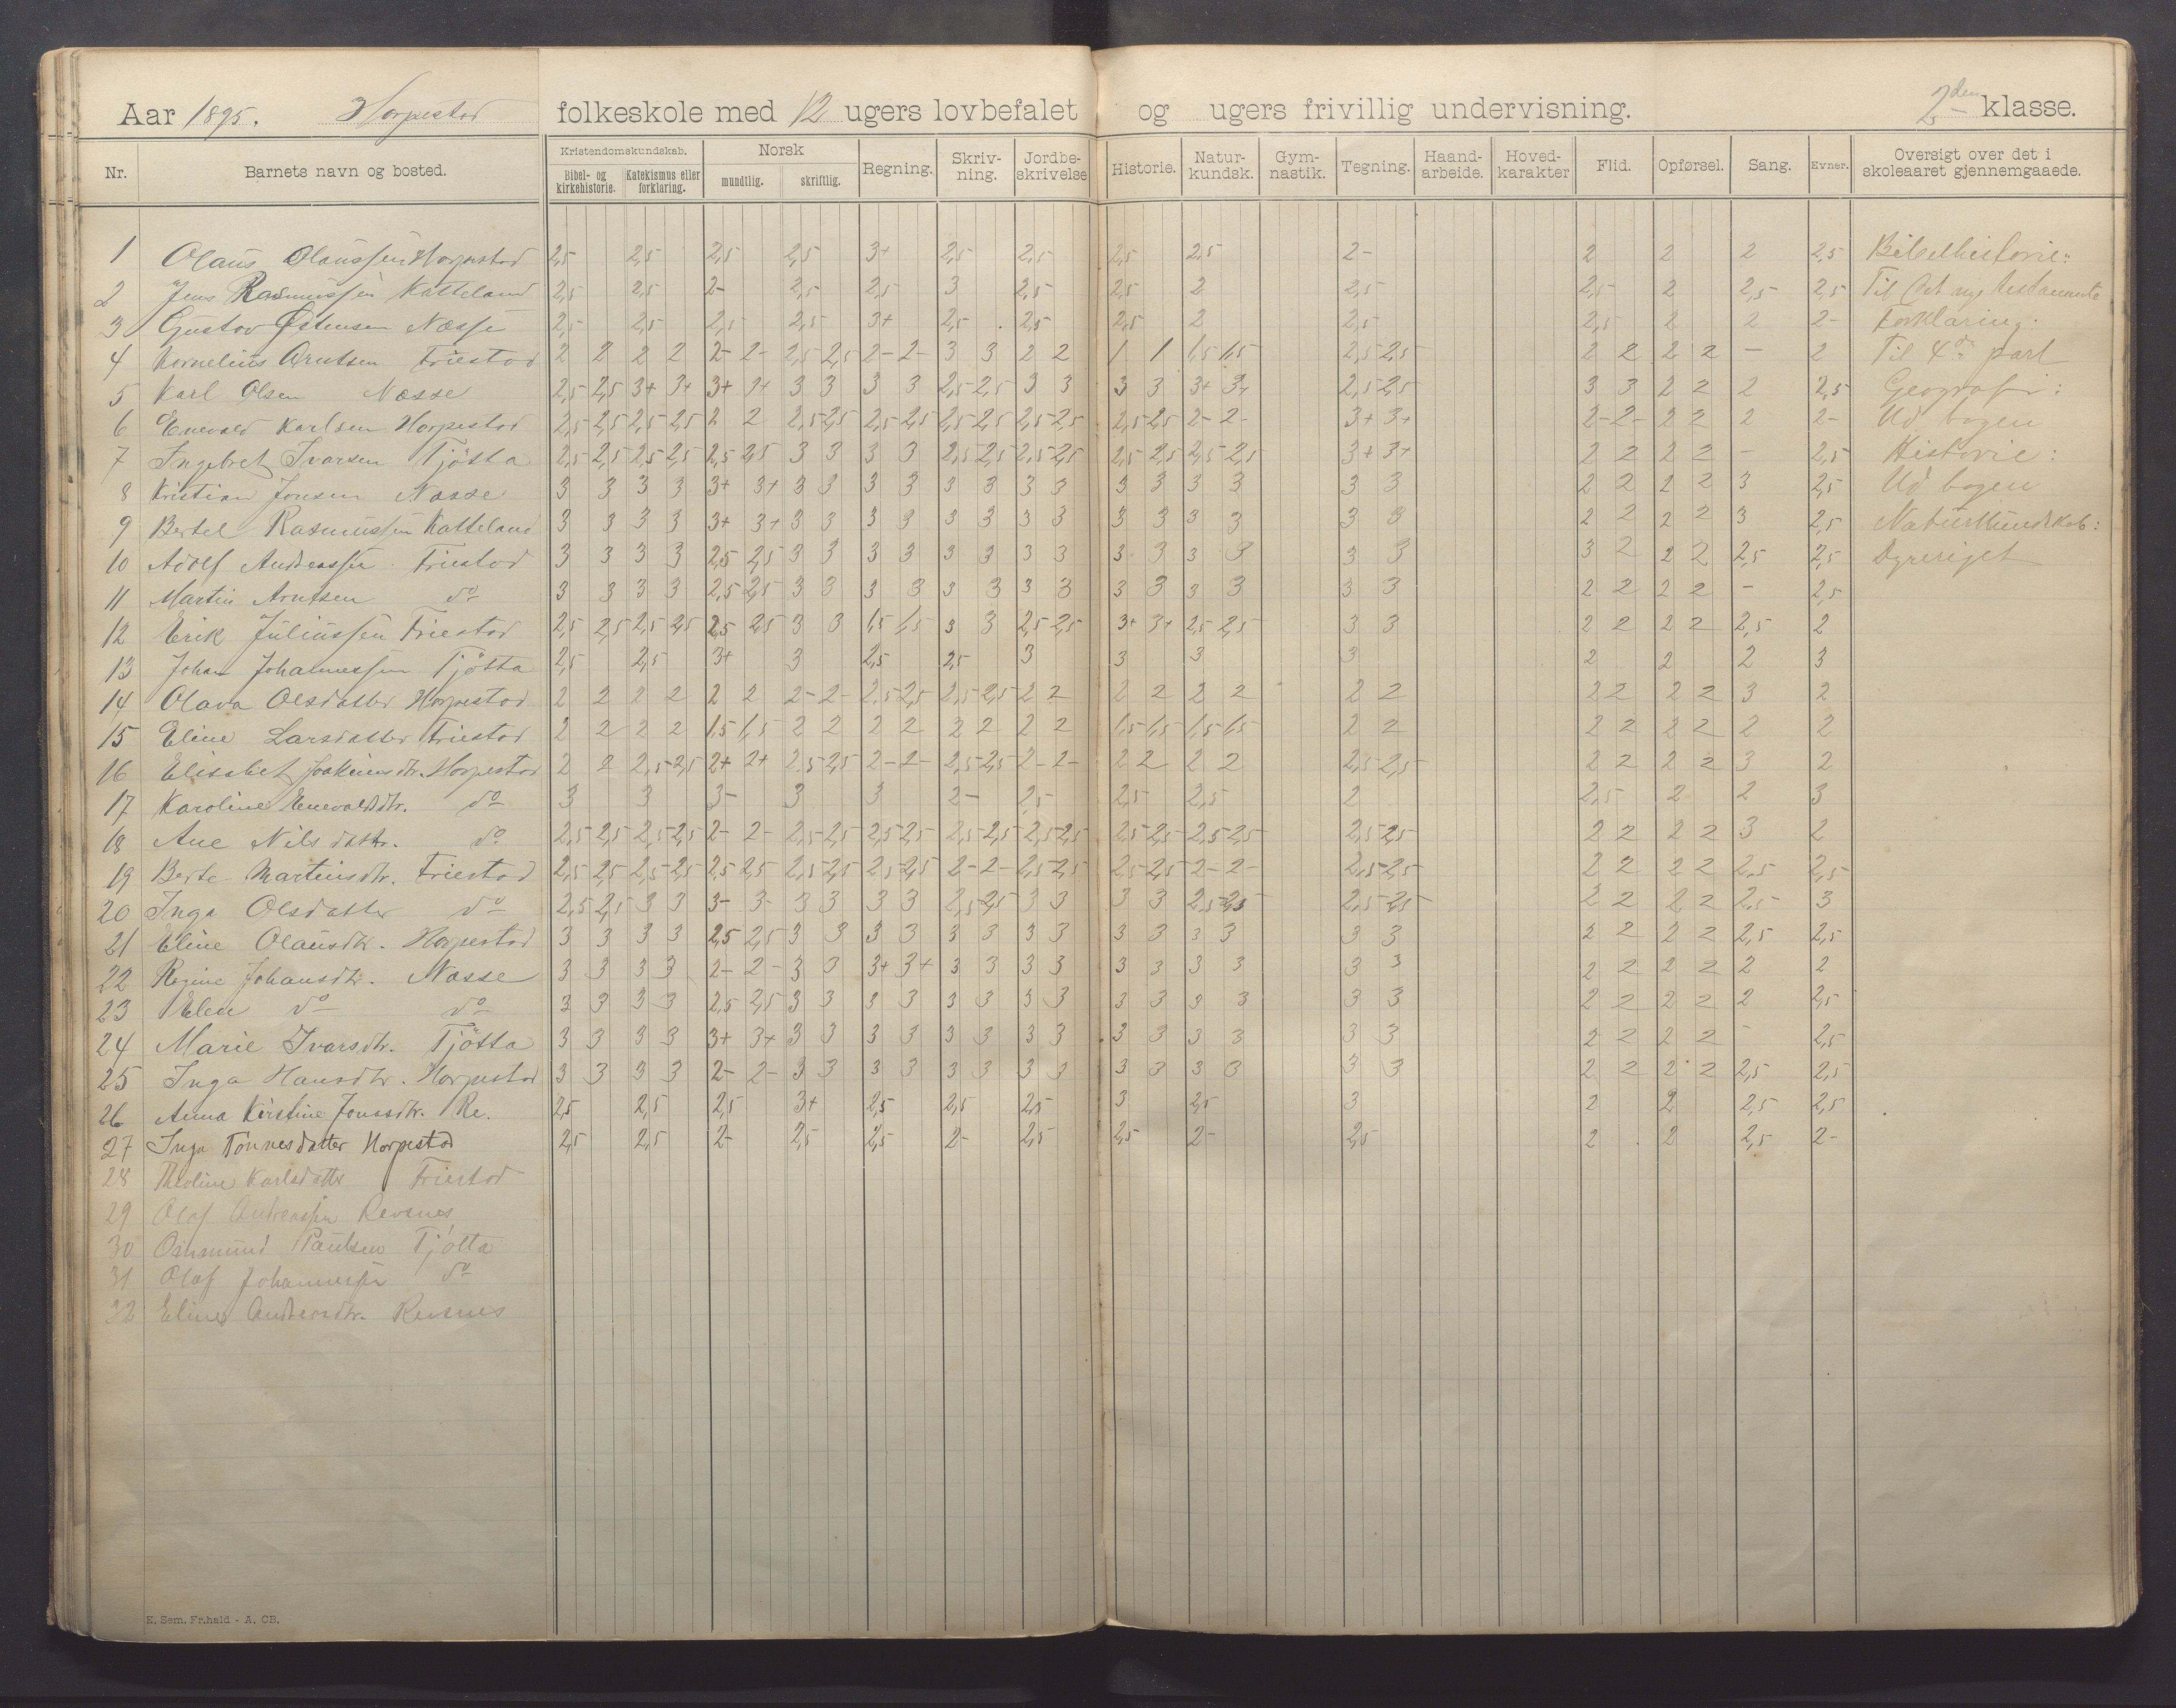 Aar 1895. Horpestad folkeskole med 12 ugers lovbefalet og ugers frivillig undervisning. 2den klasse.
Nr. Barnets navn og bosted. Kristendomskundskab. Bibel- og kirkehistorie. Katekismus eller forklaring. Norsk mundtlig. skriftlig. Regning. Skriv-ning. Jordbe-skrivelse Historie. Natur-kundsk. Gym-nastik. Tegning. Haand-arbeide. Hoved-karakter Flid. Opførsel. Sang. Evner. Oversigt over det i skoleaaret gjennemgaaede.
1 Olaus Olaussen Horpestad 2,5 2,5 2,5 2,5 3+ 2,5 2,5 2,5 2,5 2- 2 2 2 2,5 Bibelhistorie:
2 Jens Rasmussen Katteland 2,5 2,5 2- 2,5 2,5 3 2,5 2,5 2 2,5 2,5 2 2,5 2,5 Til Det nye Testamente
3 Gustav Østensen Næsse 2,5 2,5 2,5 2,5 3+ 2,5 2,5 2,5 2 2,5 2,5 2 2 2- Forklaring:
4 Kornelius Arntsen Friestad 2 2 2 2 2- 2- 2,5 2,5 2- 2- 3 3 2 2 1 1 1,5 1,5 2,5 2,5 2 2 2 2 - 2 Til 4de part
5 Karl Olsen Næsse 2,5 2,5 3+ 3+ 3+ 3+ 3 3 3 3 2,5 2,5 3 3 3 3 3+ 3+ 2,5 2,5 3 3 2 2 2 2,5 Geografi:
6 Enevald Karlsen Horpestad 2,5 2,5 2,5 2,5 2 2 2,5 2,5 2,5 2,5 2,5 2,5 2,5 2,5 2,5 2,5 2- 2- 3+ 3+ 2- 2- 2 2 2 2- Ud bogen
7 Ingebret Ivarsen Tjötta 2,5 2,5 2,5 2,5 2,5 2,5 3 3 3 3 2,5 2,5 2,5 2,5 2,5 2,5 2,5 2,5 3+ 3+ 2 2 2 2 - 2,5 Historie:
8 Kristian Jonsen Næsse 3 3 3 3 3+ 3+ 3 3 3 3 3 3 3 3 3 3 3 3 3 3 2 2 2 2 3 2,5 Ud bogen
9 Bertel Rasmussen Katteland 3 3 3 3 3+ 3+ 3 3 3 3 3 3 3 3 3 3 3 3 3 3 2 2 2 2 3 2,5 Naturkundskab:
10 Adolf Andreassen Friestad 3 3 3 3 2,5 2,5 3 3 3 3 3 3 3 3 3 3 3 3 3 3 3 2 2 2 2,5 2,5 Dyreriget
11 Martin Arntsen do 3 3 3 3 2,5 2,5 3 3 3 3 3 3 3 3 3 3 3 3 3 3 2 2 2 2 - 2,5
12 Erik Juliussen Friestad 2,5 2,5 2,5 2,5 2,5 2,5 3 3 1,5 1,5 3 3 2,5 2,5 3+ 3+ 2,5 2,5 3 3 2 2 2 2 2,5 2
13 Johan Johannessen Tjötta 2,5 2,5 3+ 3 2,5 2,5 3 3 3 3 2 2 2 3
14 Olava Olsdatter Horpestad 2 2 2 2 2 2 2- 2- 2,5 2,5 2,5 2,5 2 2 2 2 2 2 2 2 2 2 2 2 3 2
15 Eline Larsdatter Friestad 2 2 2 2 1,5 1,5 2 2 2 2 2 2 2 2 1,5 1,5 1,5 1,5 2 2 2 2 2 2 2 2
16 Elisabet Joakimsdtr. Horpestad 2 2 2,5 2,5 2+ 2+ 2,5 2,5 2- 2- 2,5 2,5 2- 2- 2 2 2 2 2,5 2,5 2 2 2 2 3 2
17 Karoline Enevaldsdtr. do 3 3 3- 3 3 2- 2,5 2,5 2,5 2 2,5 2 2 3
18 Ane Nilsdattr. do 2,5 2,5 2,5 2,5 2- 2- 2,5 2,5 2,5 2,5 2,5 2,5 2,5 2,5 2,5 2,5 2,5 2,5 2,5 2,5 2 2 2 2 3 2
19 Berte Martinsdtr. Friestad 2,5 2,5 2,5 2,5 2,5 2,5 2,5 2,5 2,5 2,5 2- 2- 2,5 2,5 2,5 2,5 2- 2- 2,5 2,5 2 2 2 2 2,5 2,5
20 Inga Olsdatter do 2,5 2,5 3 3 3- 3- 3 3 3 3 2,5 2,5 3 3 3 3 2,5 2,5 2,5 2,5 2 2 2 2 2,5 3
21 Eline Olausdtr. Horpestad 3 3 3 3 2,5 2,5 3 3 3 3 3 3 3 3 3 3 3 3 3 3 2 2 2 2 2,5 2,5
22 Regine Johansdtr. Næsse 3 3 3 3 2- 2- 3 3 3+ 3+ 3 3 3 3 3 3 3 3 3 3 2 2 2 2 2 2
23 Elen do do 3 3 3 3 2,5 2,5 3 3 3 3 3 3 3 3 3 3 3 3 3 3 2 2 2 2 2 2,5
24 Marie Ivarsdtr. Tjötta 3 3 3 3 3+ 3+ 3 3 3 3 3 3 3 3 3 3 3 3 3 3 2 2 2 2 - 2,5
25 Inga Hansdtr. Horpestad 3 3 3 3 2- 2- 3 3 3 3 3 3 3 3 3 3 3 3 3 3 2 2 2 2 2,5 2,5
26 Anna Kirstine Jonasdtr. Re. 2,5 2,5 2,5 3+ 2,5 2,5 2,5 3 2,5 3 2 2 2,5 2,5
27 Inga Tönnesdatter Horpestad 2,5 2,5 2- 2,5 2,5 2- 2,5 2,5 2- 2,5 2 2 2,5 2-
28 Theoline Karlsdatter Friestad
29 Olaf Andreassen Revsnes
30 Osmund Paulsen Tjötta
31 Olaf Johannessen do
32 Eline Andreasdtr. Revsnes
E. Sem. Fr.hald - A. CB.